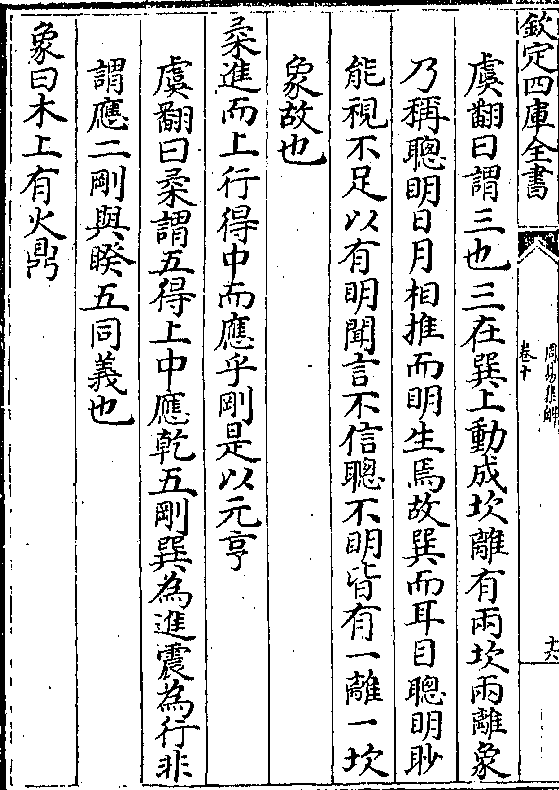 欽定四庫全書
周易集解
卷十
十六
虞翻曰謂三也三在巽上動成坎離有兩坎兩離象
乃稱聰明日月相推而明生焉故巽而耳目聰明眇
能視不足以有明聞言不信聰不明皆有一離一坎
象故也
柔進而上行得中而應乎剛是以元亨
虞翻曰柔謂五得上中應乾五剛巽為進震為行非
謂應二剛與睽五同義也
象曰木上有火鼎